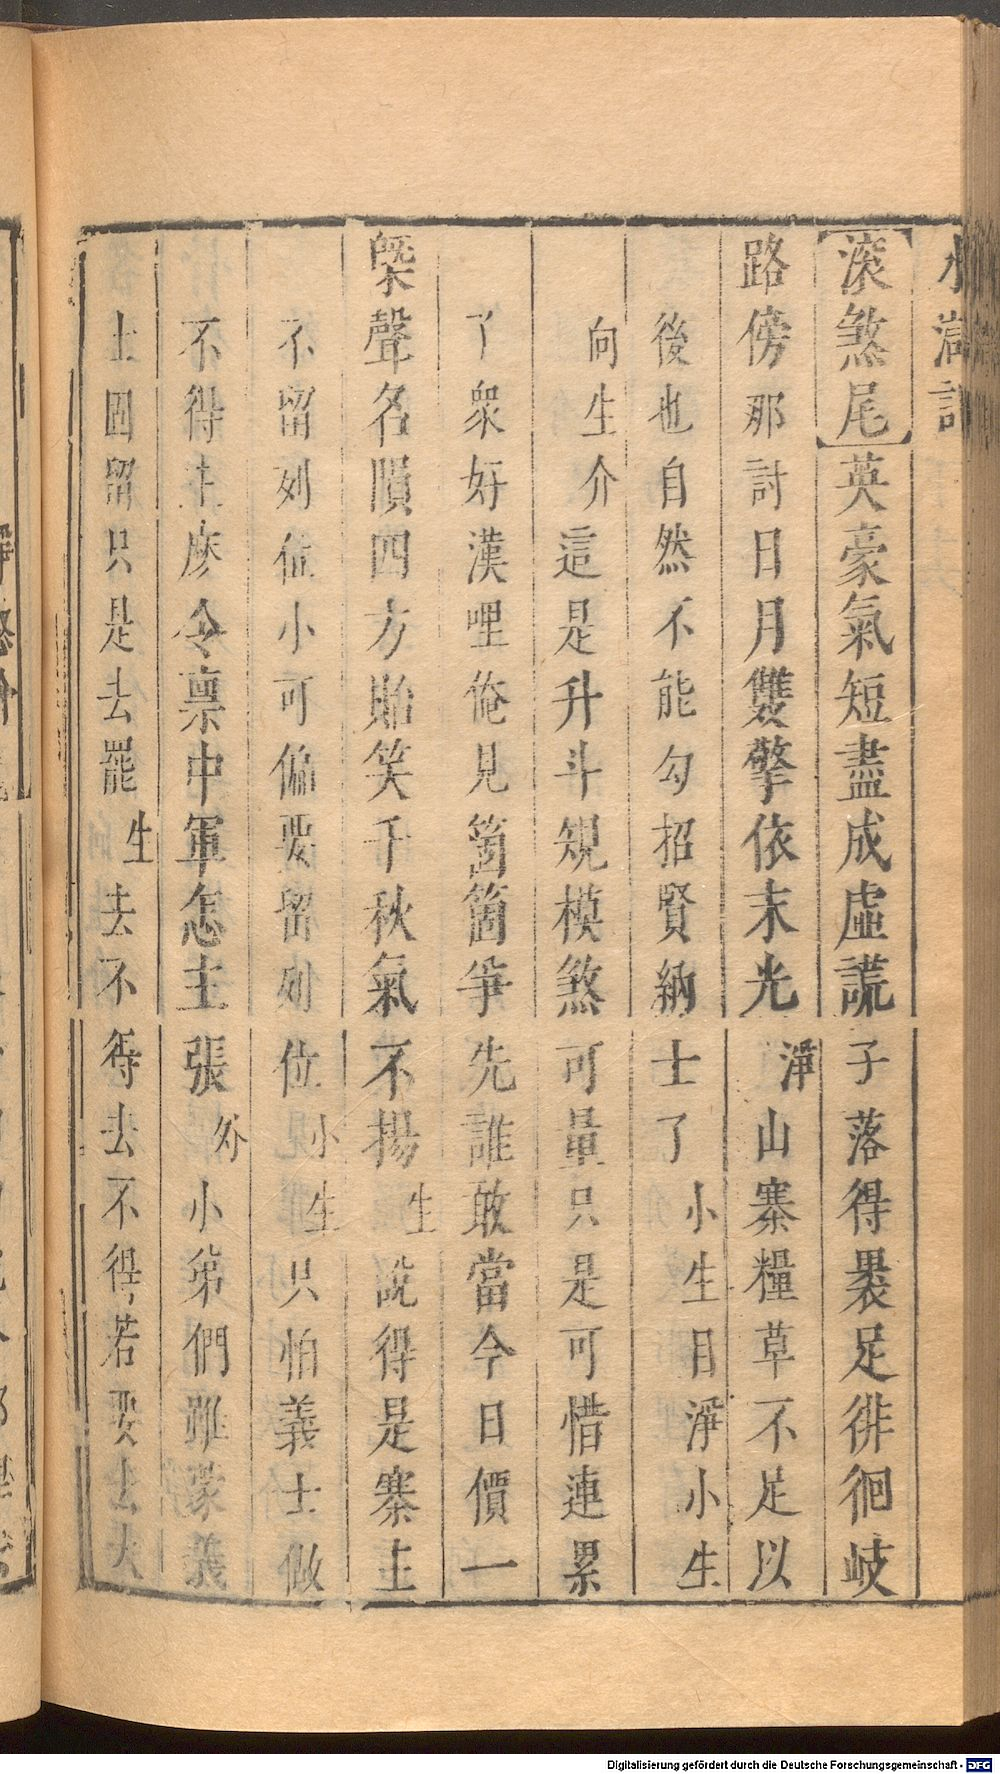 水滸記
【滚煞尾】英豪氣短盡成虛謊子落得褁足徘徊岐
路傍那討日月雙擎依末光淨山寨糧草不足以
後也自然不能勾招賢納士了小生目淨小生
向生介這是升斗規模煞可量只是可惜連累
了衆好漢哩俺見箇箇爭先誰敢當今日價一
槩聲名隕四方貽笑千秋氣不揚生説得是寨主
不留列位小可偏要留列位小生只怕義士做
不得主庶令禀中軍怎主張外小弟們雖蒙義
士固留只是去罷生去不得去不得若要去大
Digitalisierung gefördert durch die Deutsche Forschungsgemeinschaft - DFG